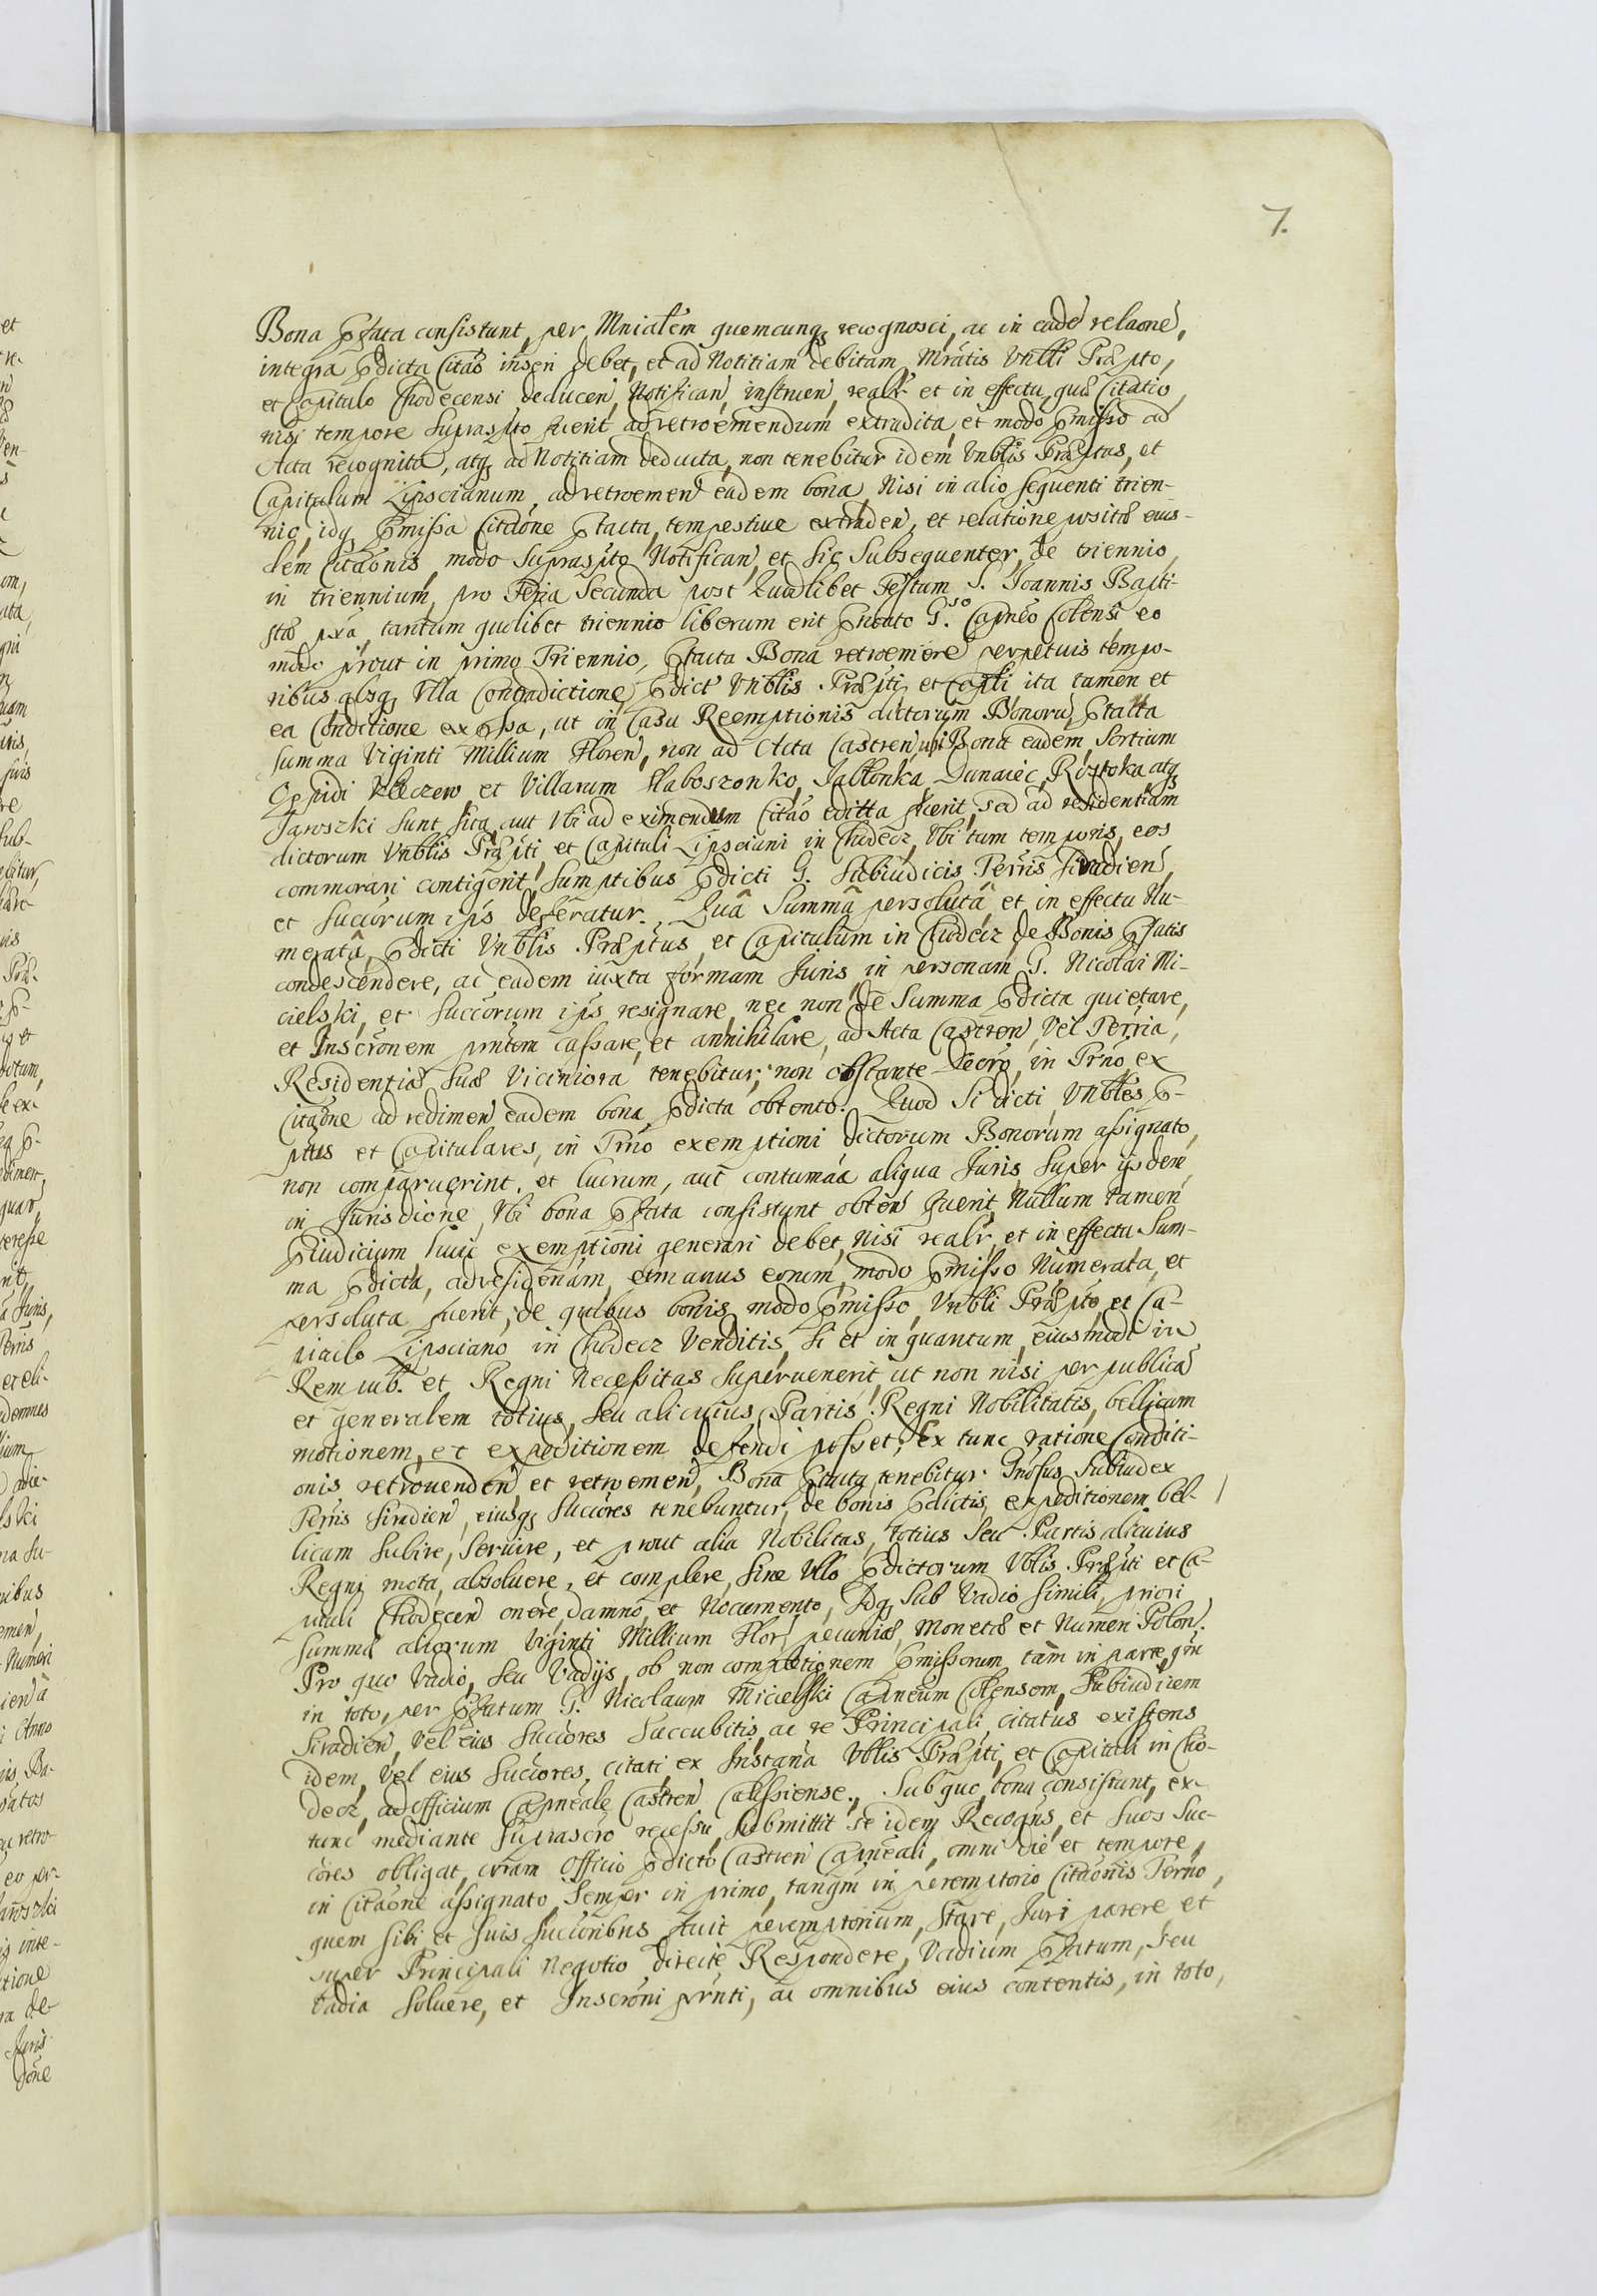 7.
Bona p̄fata consistunt, per Mnialem quemcunq; recognosci, ac in eadē relaone,
integra p̄dicta Citao inseri debet, et ad Notitiam debitam Mratis Vnbli Præpto,
et Capitulo Chodecensi deducen, Notifican, instruen, realr et in effectu, quæ Citatio
nisi tempore supraspto fuerit ad retroemendum extradita, et modo p̄misso ad
Acta recognita, atq; ad Notitiam deducta, non tenebitur idem Vnblis Præptus, et
Capitulum Lipscianum, ad retroemen eadem bona, Nisi in alio sequenti trien-
nio, idq; p̄missa Citaone p̄tacta, tempestiue extraden, et relatione positæ eius-
dem Citaonis, modo supraspto Notifican, et sic Subsequenter, de triennio,
in triennium, pro Feria Secunda post Quodlibet Festum S. Joannis Bapti-
stæ pxa, tantum quolibet triennio liberum erit p̄noato G.so Capneo Colensi eo
modo prout in primo Triennio, p̄tacta Bona retroemere perpetuis tempo-
ribus absq; Vlla Contradictione p̄dict Vnblis Præpti, et Capli ita tamen et
ea Conditione exp̄ssa, ut in Casu Reemptionis dictorum Bonoru, p̄tacta
summa Viginti Millium Floren, non ad Acta Castren ubi Bona eadem, Sortium
Oppidi Kleczew et Villarum Slaboszonko, Jabłonka, Dunaiec, Roztoka atq;
Jaroszki sunt sita, aut Vbi ad eximendum Citao editta fuerit, sed ad residentiam
dictorum Vnblis Præpti et Capituli Lipsciani in Chodecz, Vbi tum temporis, eos
commorari contigerit, sumptibus p̄dicti G. Subiudicis Terris Siradien,
et Succorum ips deferatur. Quâ Summâ persolutâ et in effectu Nu-
meratâ, p̄dicti Vnblis Præptus, et Capitulum in Chodecz, de Bonis p̄fatis
condescendere, ac eadem iuxta formam Juris, in personam G. Nicolai Mi-
cielski, et Succorum ips resignare, nec non de Summa p̄dicta quietare,
et Inscronem pntem cassare, et annihilare, ad Acta Castren, Vel Terria,
Residentiæ suæ Viciniora tenebitur, non obstante Decro, in Trno, ex
Citaone ad redimen eadem bona p̄dicta obtento. Quod Si dicti Vnbles P-
pttus et Capitulares, in Trno exemptioni dictorum Bonorum assignato,
non comparuerint, et lucrum, aut contumaa aliqua Juris, super ijsdem
in Jurisdione, Vbi bona p̄fata consistunt obten fuerit, Nullum tamen
p̄iudicium huic exemptioni generari debet, nisi realr, et in effectu Sum-
ma p̄dicta, ad residenam, et manus eorum, modo p̄misso Numerata, et
persoluta fuerit, de quibus bonis modo p̄misso, Vnbli Præpto, et Ca-
pitulo Lipsciano in Chodecz Venditis, si et in quantum, eiusmodi in
Rempub. et Regni Necessitas superuenerit, ut non nisi per publica
et generalem totius, seu alicuius Partis Regni Nobilitatis, bellicam
motionem, et expeditionem defendi posset, ex tunc ratione Conditi-
onis retrouenden et retroemen, Bona p̄tacta tenebitur Gnosus Subiudex
Terris Siradien, eiusq; Succores tenebuntur, de bonis p̄dictis, expeditionem bel-
licam subire, seruire, et prout alia Nobilitas, totius seu Partis alicuius
Regni mota, absoluere, et complere, sine Vllo p̄dictorum Vblis Præpti et Ca-
pituli Chodecen onere, damno, et Nocumento, Idq; Sub Vadio simili, priori
summæ aliorum Viginti Millium Flor, pecuniæ, Monetæ et Numeri Polon.
Pro quo Vadio, seu Vadijs, ob non completionem p̄missorum, tam in parte, qm
in toto, per p̄fatum G. Nicolaum Micielski Capneum Colensem, Subiudicem
Siradien, Vel eius Succores succubitis, ac re Principali, citatus existens
idem, Vel eius Succores, citati, ex Instana Vblis Præpti, et Capituli in Cho-
decz, ad Officium Capneale Castren Calissiense, Sub quo bona consistunt, ex-
tunc mediante suprascro recessu, submittit se idem Recogns, et suos Suc-
cores obligat, coram Officio p̄dicto Castren Capneali, omni die et tempore,
in Citaone assignato, Semper in primo, tanqm in peremptorio Citaonis Terno,
quem sibi et suis succoribus facit peremptorium, stare, Juri parere et
super Principali Negotio, directe Respondere, Vadium p̄fatum, seu
Vadia soluere, et Inscroni pnti, ac omnibus eius contentis, in toto,